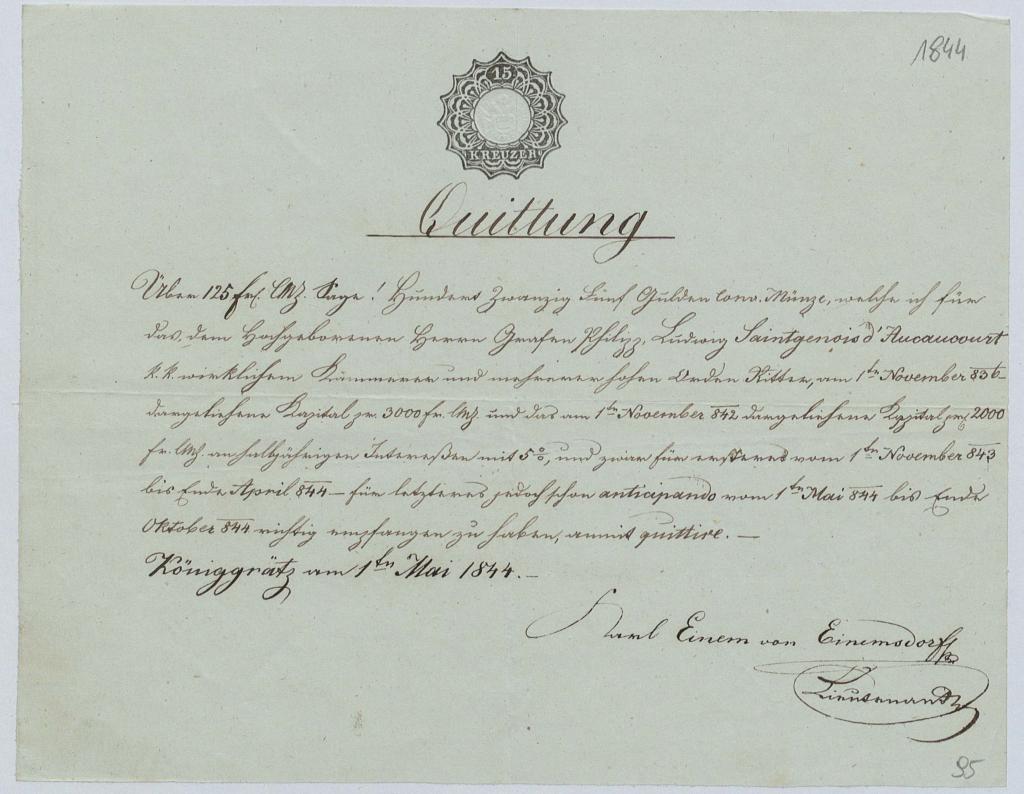 1844
15
KREUZER
Quittung
Über 125 fr. CMz. Sage! Hundert Zwanzig Fünf Gulden Conv. Münze, welche ich für
das, dem Hochgeborenen Herrn Grafen Philipp, Ludwig Saintgenois d'Aucaucourt
k. k. wirklichem Kämmerer und mehrerer hohen Orden Ritter, am 1ten November 836
dargeliehene Kapital pr. 3000 fr. CMz. und das am 1ten November 842 dargeliehene Kapital pr. 2000
fr. CMz. an halbjährigen Interessen mit 5%, und zwar für ersteres vom 1ten November 843
bis Ende April 844 – für letzteres jedoch schon anticipando vom 1ten Mai 844 bis Ende
Oktober 844 richtig empfangen zu haben, anmit quittire. –
Königgrätz am 1ten Mai 1844. –
Karl Einem von Einemsdorff
Lieutenant
95